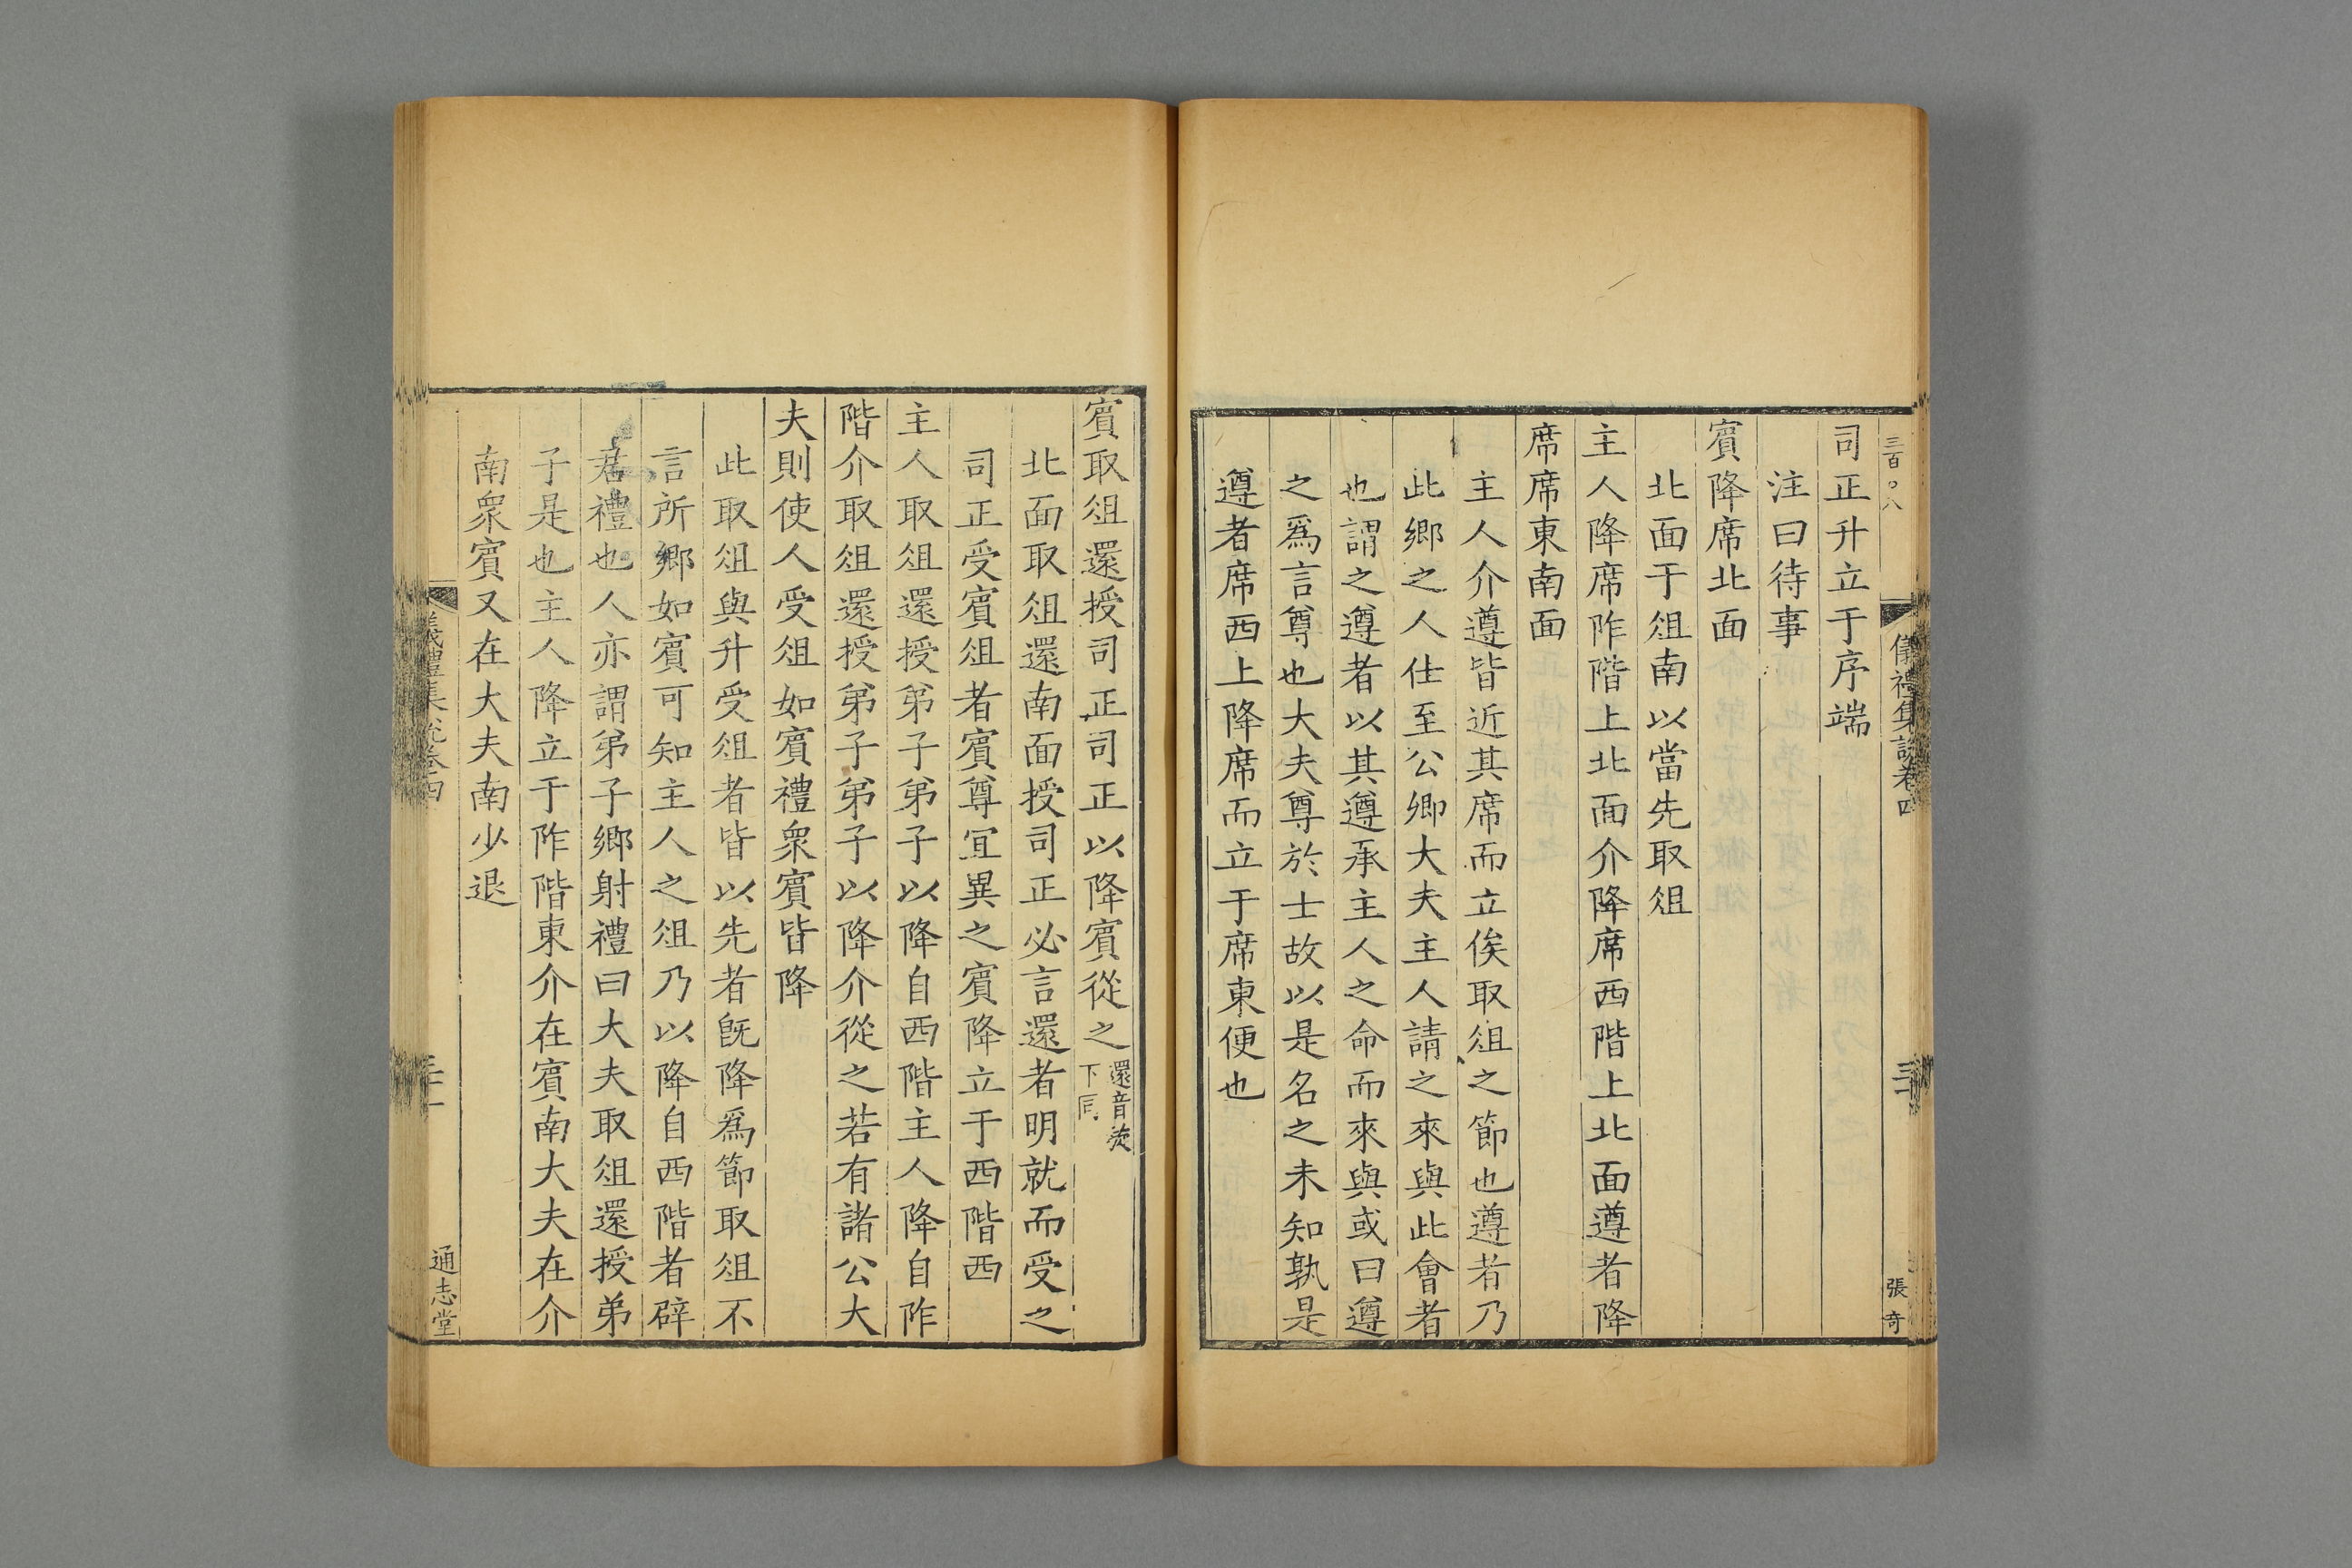 三百〇八
儀禮集說卷四
張奇
司正升立于序端
注曰待事
賓降席北面
北面于俎南以當先取俎
主人降席阼階上北面介降席西階上北面遵者降
席席東南面
主人介遵皆近其席而立俟取俎之節也遵者乃
此鄉之人仕至公卿大夫主人請之來與此會者
也謂之遵者以其遵承主人之命而來與或曰遵
之爲言尊也大夫尊於士故以是名之未知孰是
遵者席西上降席而立于席東便也
賓取俎還授司正司正以降賓從之還音旋下同
北面取俎還南面授司正必言還者明就而受之
司正受賓俎者賓尊宜異之賓降立于西階西
主人取俎還授弟子弟子以降自西階主人降自阼
階介取俎還授弟子弟子以降介從之若有諸公大
夫則使人受俎如賓禮衆賓皆降
此取俎與升受俎者皆以先者旣降爲節取俎不
言所鄉如賓可知主人之俎乃以降自西階者辟
君禮也人亦謂弟子鄉射禮曰大夫取俎還授弟
子是也主人降立于阼階東介在賓南大夫在介
南衆賓又在大夫南少退
通志堂